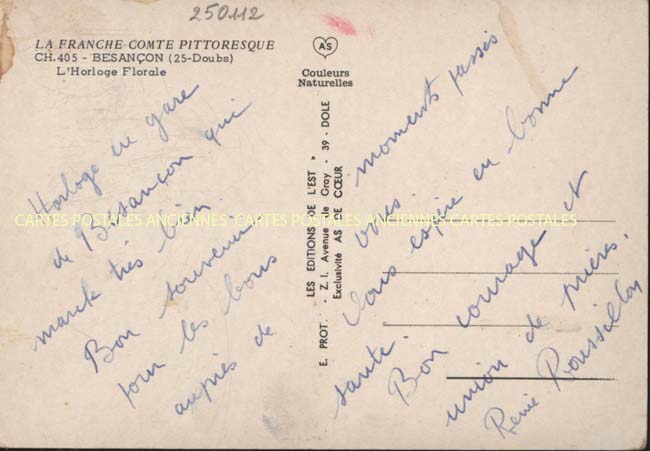 250112
LA FRANCHE COMTE PITTORESQUE
CH.405 - BESANÇON (25-Doubs)
L'Horloge Florale
AS
Couleurs
Naturelles
LES EDITIONS DE L'EST »
E. PROT. - Z. I. Avenue de Gray - 39 - DOLE
Exclusivité AS DE CŒUR
Horloge en gare
de Besançon qui
marche très bien.
Bon souvenir
pour les bons
auprès de
moments passés
vous.
Vous espère en bonne
santé.
Bon courage et
union de prières.
René Roussillon
CARTES POSTALES ANCIENNES CARTES POSTALES ANCIENNES CARTES POSTALES